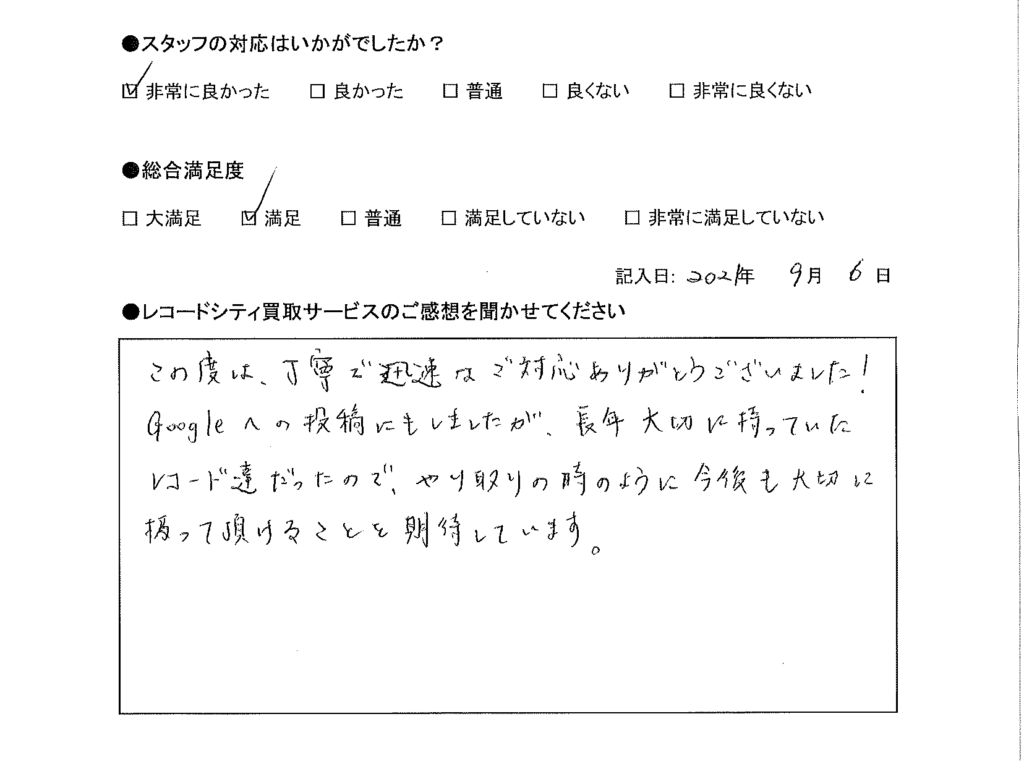 ●スタッフの対応はいかがでしたか？
☑ 非常に良かった □ 良かった □ 普通 □ 良くない □ 非常に良くない
●総合満足度
□ 大満足 ☑ 満足 □ 普通 □ 満足していない □ 非常に満足していない
記入日: 2021年 9月 6日
●レコードシティ買取サービスのご感想を聞かせてください
この度は、丁寧で迅速なご対応ありがとうございました！
Googleへの投稿にもしましたが、長年大切に持っていた
レコード達だったので、やり取りの時のように今後も大切に
扱って頂けることを期待しています。